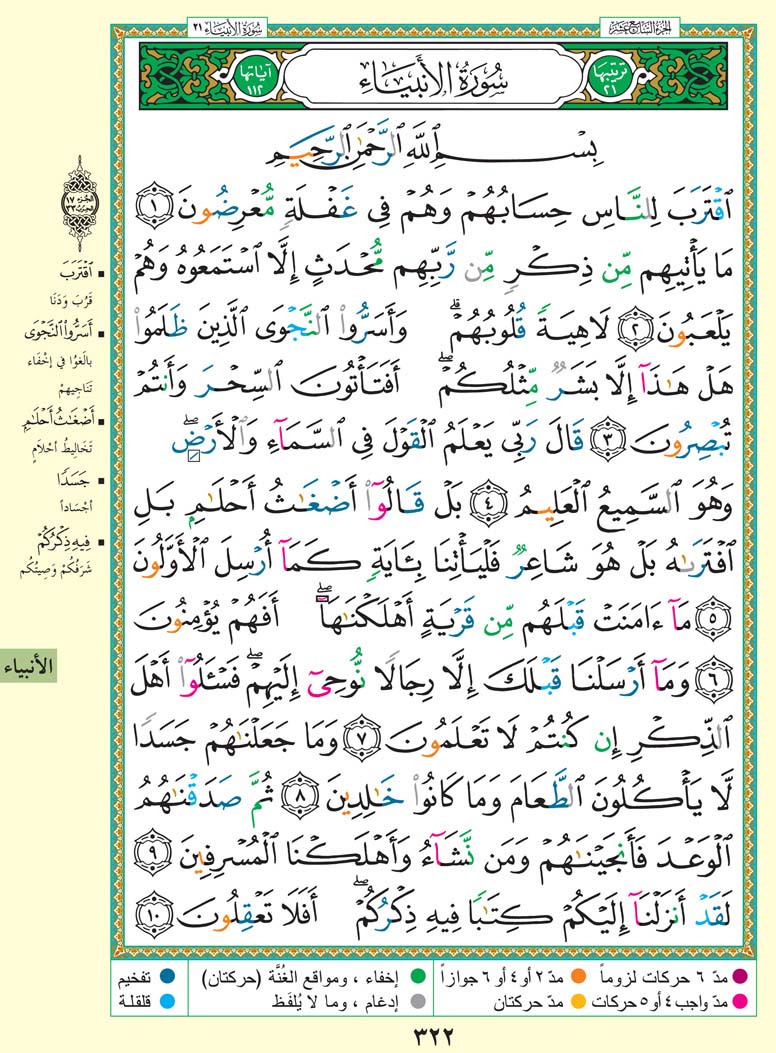 الجزء السابع عشر
سورة الأنبياء ٢١
ترتيبها ٢١
سُورَةُ الأَنبيَاء
آياتها ١١٢
بِسْمِ ٱللَّهِ ٱلرَّحْمَٰنِ ٱلرَّحِيمِ
ٱقْتَرَبَ لِلنَّاسِ حِسَابُهُمْ وَهُمْ فِى غَفْلَةٍ مُّعْرِضُونَ ١
مَا يَأْتِيهِم مِّن ذِكْرٍ مِّن رَّبِّهِم مُّحْدَثٍ إِلَّا ٱسْتَمَعُوهُ وَهُمْ
يَلْعَبُونَ ٢ لَاهِيَةً قُلُوبُهُمْ ۗ وَأَسَرُّوا۟ ٱلنَّجْوَى ٱلَّذِينَ ظَلَمُوا۟
هَلْ هَٰذَآ إِلَّا بَشَرٌ مِّثْلُكُمْ ۖ أَفَتَأْتُونَ ٱلسِّحْرَ وَأَنتُمْ
تُبْصِرُونَ ٣ قَالَ رَبِّى يَعْلَمُ ٱلْقَوْلَ فِى ٱلسَّمَآءِ وَٱلْأَرْضِ ۖ
وَهُوَ ٱلسَّمِيعُ ٱلْعَلِيمُ ٤ بَلْ قَالُوٓا۟ أَضْغَٰثُ أَحْلَٰمٍۭ بَلِ
ٱفْتَرَىٰهُ بَلْ هُوَ شَاعِرٌ فَلْيَأْتِنَا بِـَٔايَةٍ كَمَآ أُرْسِلَ ٱلْأَوَّلُونَ
٥ مَآ ءَامَنَتْ قَبْلَهُم مِّن قَرْيَةٍ أَهْلَكْنَٰهَآ ۖ أَفَهُمْ يُؤْمِنُونَ
٦ وَمَآ أَرْسَلْنَا قَبْلَكَ إِلَّا رِجَالًا نُّوحِىٓ إِلَيْهِمْ ۖ فَسْـَٔلُوٓا۟ أَهْلَ
ٱلذِّكْرِ إِن كُنتُمْ لَا تَعْلَمُونَ ٧ وَمَا جَعَلْنَٰهُمْ جَسَدًا
لَّا يَأْكُلُونَ ٱلطَّعَامَ وَمَا كَانُوا۟ خَٰلِدِينَ ٨ ثُمَّ صَدَقْنَٰهُمُ
ٱلْوَعْدَ فَأَنجَيْنَٰهُمْ وَمَن نَّشَآءُ وَأَهْلَكْنَا ٱلْمُسْرِفِينَ ٩
لَقَدْ أَنزَلْنَآ إِلَيْكُمْ كِتَٰبًا فِيهِ ذِكْرُكُمْ ۖ أَفَلَا تَعْقِلُونَ ١٠
الجزء ١٧
الحزب ٣٣
ٱقْتَرَبَ
قَرُبَ وَدَنَا
أَسَرُّوا۟ ٱلنَّجْوَى
بالَغُوا في إخْفَاء
تَنَاجِيهِمْ
أَضْغَٰثُ أَحْلَٰمٍ
تَخَالِيطُ أحْلامٍ
جَسَدًا
أجْسَاداً
فِيهِ ذِكْرُكُمْ
شَرَفُكُمْ وَصِيتُكُم
الأنبياء
مدّ ٦ حركات لزوماً
مدّ ٢ أو ٤ أو ٦ جوازاً
إخفاء ، ومواقع الغُنَّة (حركتان)
تفخيم
مدّ واجب ٤ أو ٥ حركات
مدّ حركتان
إدغام ، وما لا يُلفَظ
قلقلة
٣٢٢